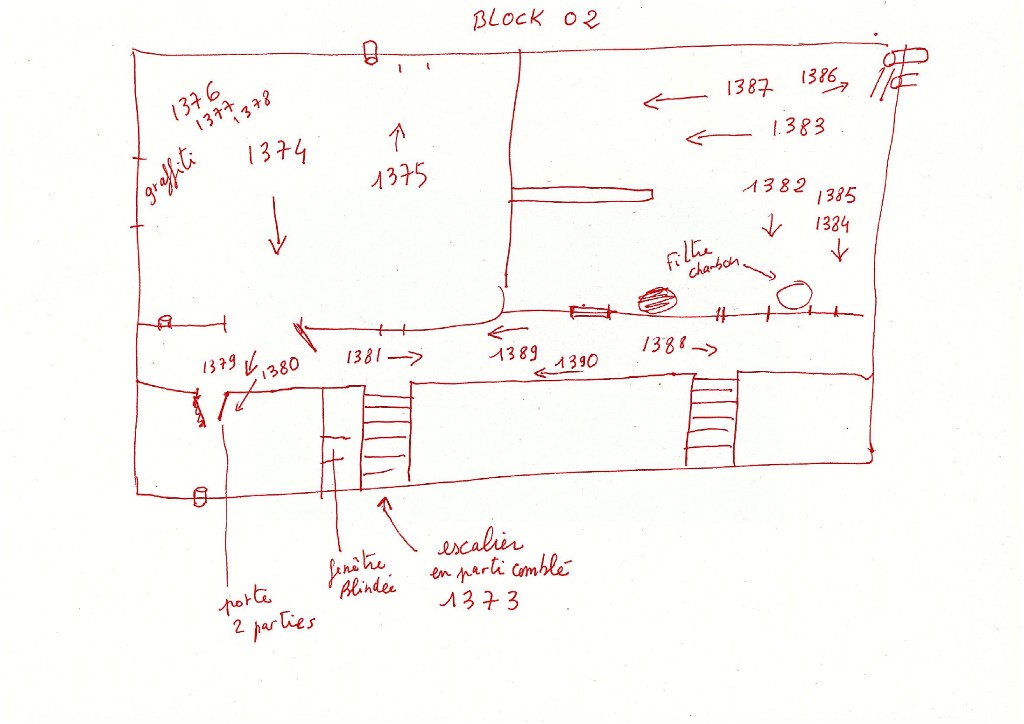 BLOCK 02
1376
1377
1378
graffiti
1374
1375
1387
1386
1383
1382
1385
1384
Filtre
charbon
1379
1380
1381
1389
1390
1388
porte
2 parties
fenêtre
Blindée
escalier
en parti comblé
1373